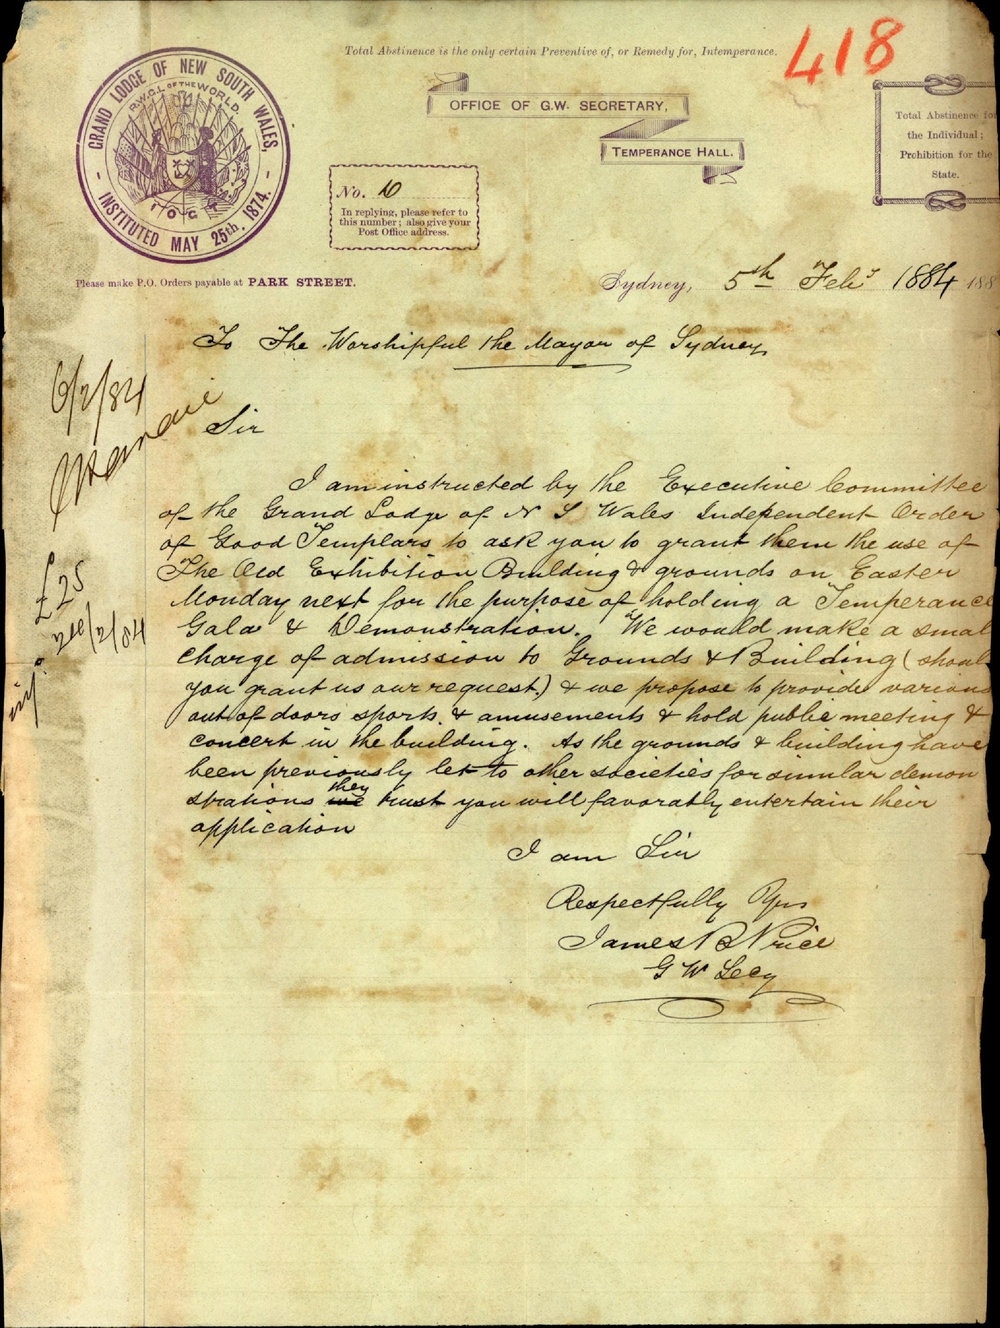 Total Abstinence is the only certain Preventive of, or Remedy for, Intemperance.
418
GRAND LODGE OF NEW SOUTH WALES,
R.W.G.L OF THE WORLD
I O G T
INSTITUTED MAY 25th. 1874.
OFFICE OF G.W. SECRETARY,
TEMPERANCE HALL.
Total Abstinence for
the Individual;
Prohibition for the
State.
No. 10
In replying, please refer to
this number; also give your
Post Office address.
Please make P.O. Orders payable at PARK STREET.
Sydney, 5th Feby 1884 188
To The Worshipful the Mayor of Sydney
6/2/84
Sir
I am instructed by the Executive Committee
of the Grand Lodge of N S Wales Independent Order
of Good Templars to ask you to grant them the use of
The Old Exhibition Building & grounds on Easter
Monday next for the purpose of holding a Temperance
Gala & Demonstration. We would make a small
charge of admission to Grounds & Building (shoul
you grant us our request.) & we propose to provide various
out of doors sports. & amusements & hold public meeting &
concert in the building. As the grounds & building have
been previously let to other societies for similar demon
strations they we trust you will favorably entertain their
application
£25
24/2/84
I am Sir
Respectfully Yrs
James B Price
G W Secy